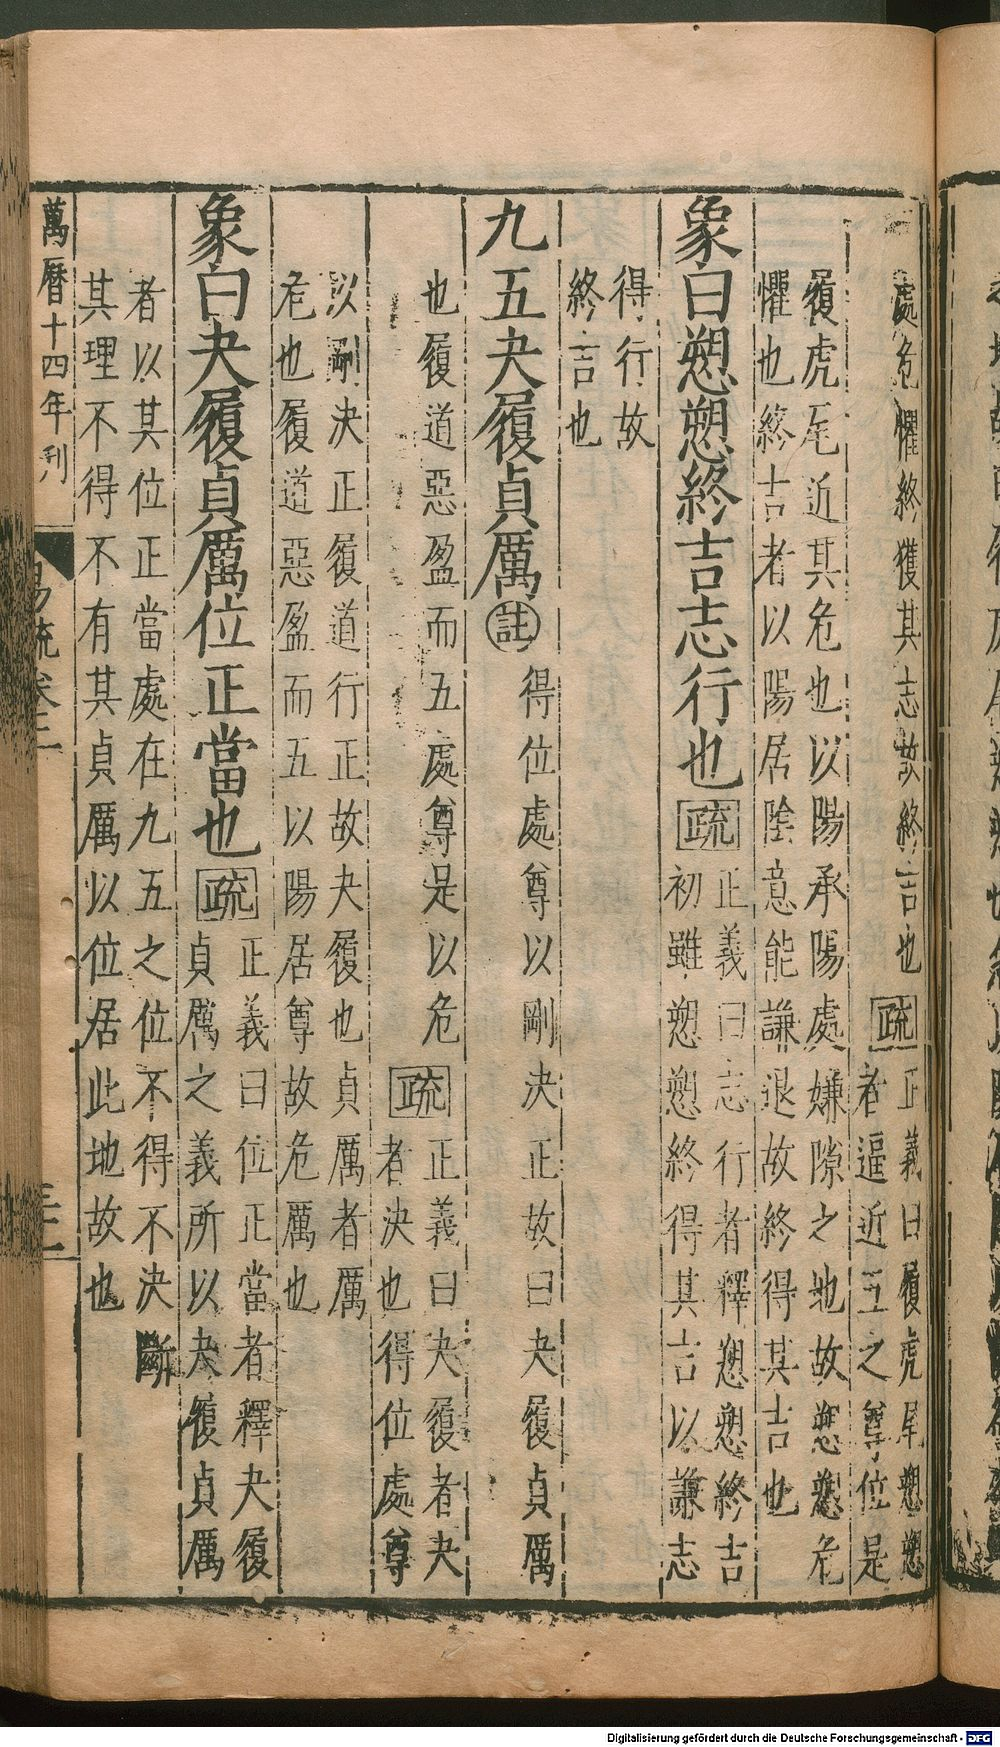 處危懼終獲其志故終吉也疏正義曰履虎尾愬愬
者逼近五之尊位是
履虎尾近其危也以陽承陽處嫌隙之地故愬愬危
懼也終吉者以陽居陰意能謙退故終得其吉也
象曰愬愬終吉志行也疏正義曰志行者釋愬愬終吉
初雖愬愬終得其吉以謙志
得行故
終吉也
九五夬履貞厲註得位處尊以剛決正故曰夬履貞厲
也履道惡盈而五處尊是以危疏正義曰夬履者夬
者決也得位處尊
以剛決正履道行正故夬履也貞厲者厲
危也履道惡盈而五以陽居尊故危厲也
象曰夬履貞厲位正當也疏正義曰位正當者釋夬履
貞厲之義所以夬履貞厲
者以其位正當處在九五之位不得不決斷
其理不得不有其貞厲以位居此地故也
萬曆十四年刊
易疏卷二
Digitalisierung gefördert durch die Deutsche Forschungsgemeinschaft - DFG